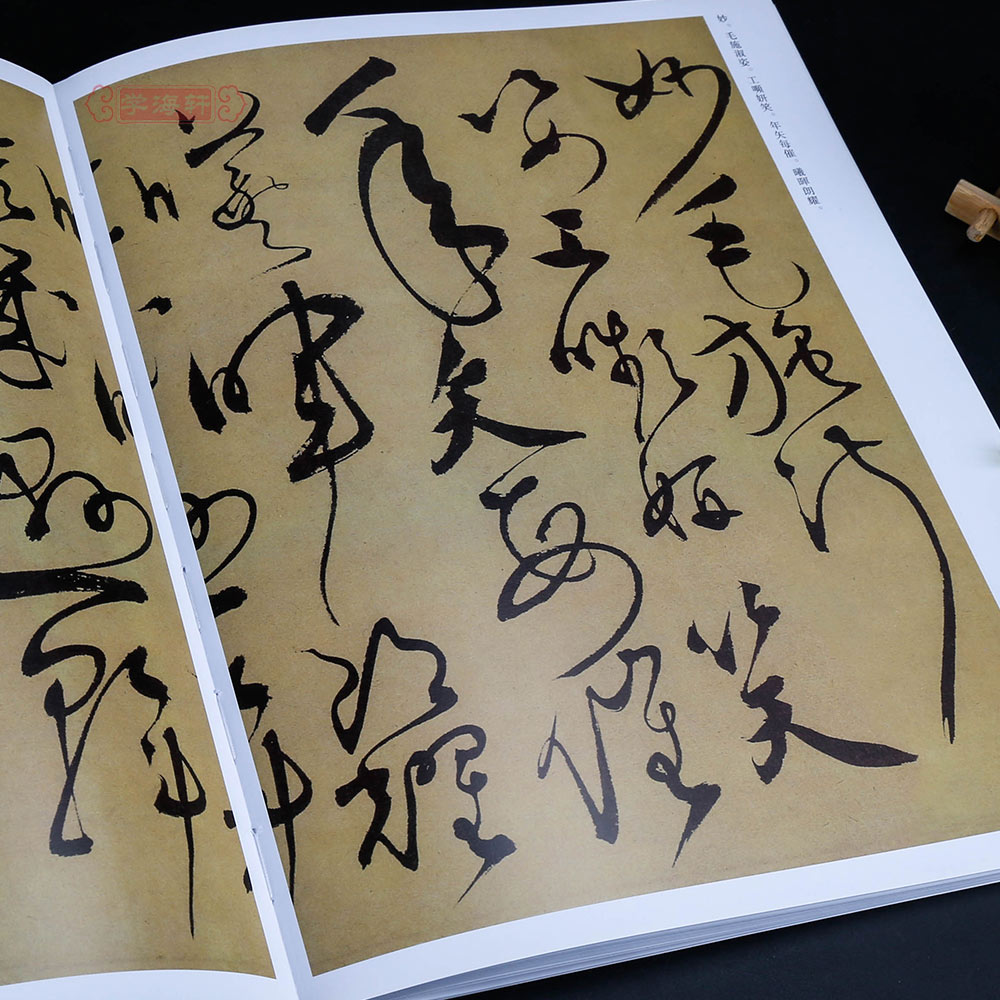 学海轩
妙。毛施淑姿。工嚬妍笑。年矢每催。曦暉朗耀。
妙毛施淑
姿工嚬妍笑
年矢每催
羲暉朗耀